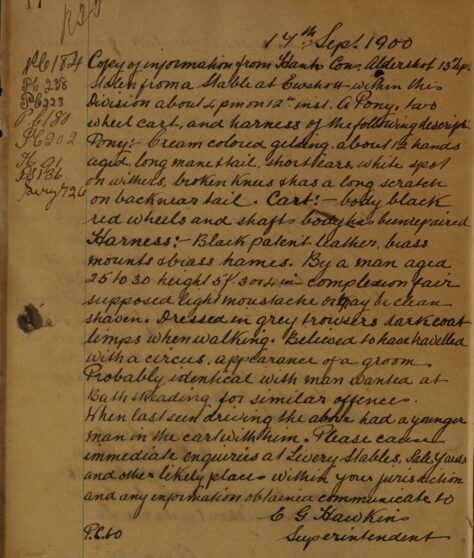 17th Sept. 1900
Pb 184
Pb 238
Pb 223
Pb 180
Pb 202
Pb 91
PS 136
Copy of information from Hants Con. Aldershot 13th Sep.
Stolen from a Stable at Ewshott within this
Division about 4 pm on 12th inst. A Pony, two
wheel cart, and harness of the following descript
Pony:- Cream colored gelding, about 12 hands
aged, long mane & tail, short ears, white spot
on withers, broken knees & has a long scratch
on back near tail. Cart:- body black
red wheels and shafts body has been repaired
Harness:- Black patent leather, brass
mounts & brass hames. By a man aged
25 to 30 height 5 ft. 3 or 4 in complexion fair
supposed light moustache or may be clean
shaven. Dressed in grey trowsers dark coat
limps when walking. Believed to have travelled
with a circus, appearance of a groom
Probably identical with man wanted at
Bath & Reading for similar offence.
When last seen driving the above had a younger
man in the cart with him. Please cause
immediate enquiries at Livery Stables, Sale Yards
and other likely places within your jurisdiction
and any information obtained communicate to
E G Hawkins
P.C. 60 Superintendent